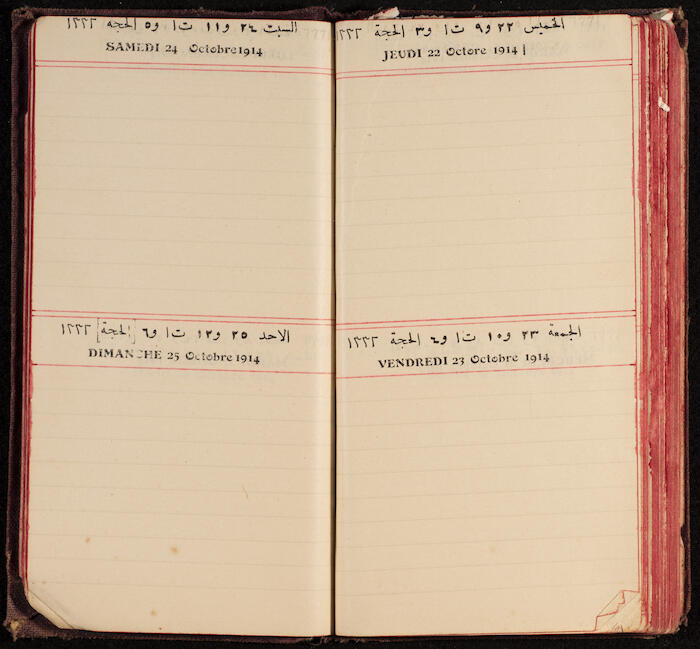 الخميس ٢٢ و٩ ت١ و٣ الحجة ١٣٣٢
JEUDI 22 Octore 1914
الجمعة ٢٣ و١٠ ت١ و٤ الحجة ١٣٣٢
VENDREDI 23 Octobre 1914
السبت ٢٤ و١١ ت١ و٥ الحجة ١٣٣٢
SAMEDI 24 Octobre 1914
الاحد ٢٥ و١٢ ت١ و٦ [الحجة] ١٣٣٢
DIMANCHE 25 Octobre 1914